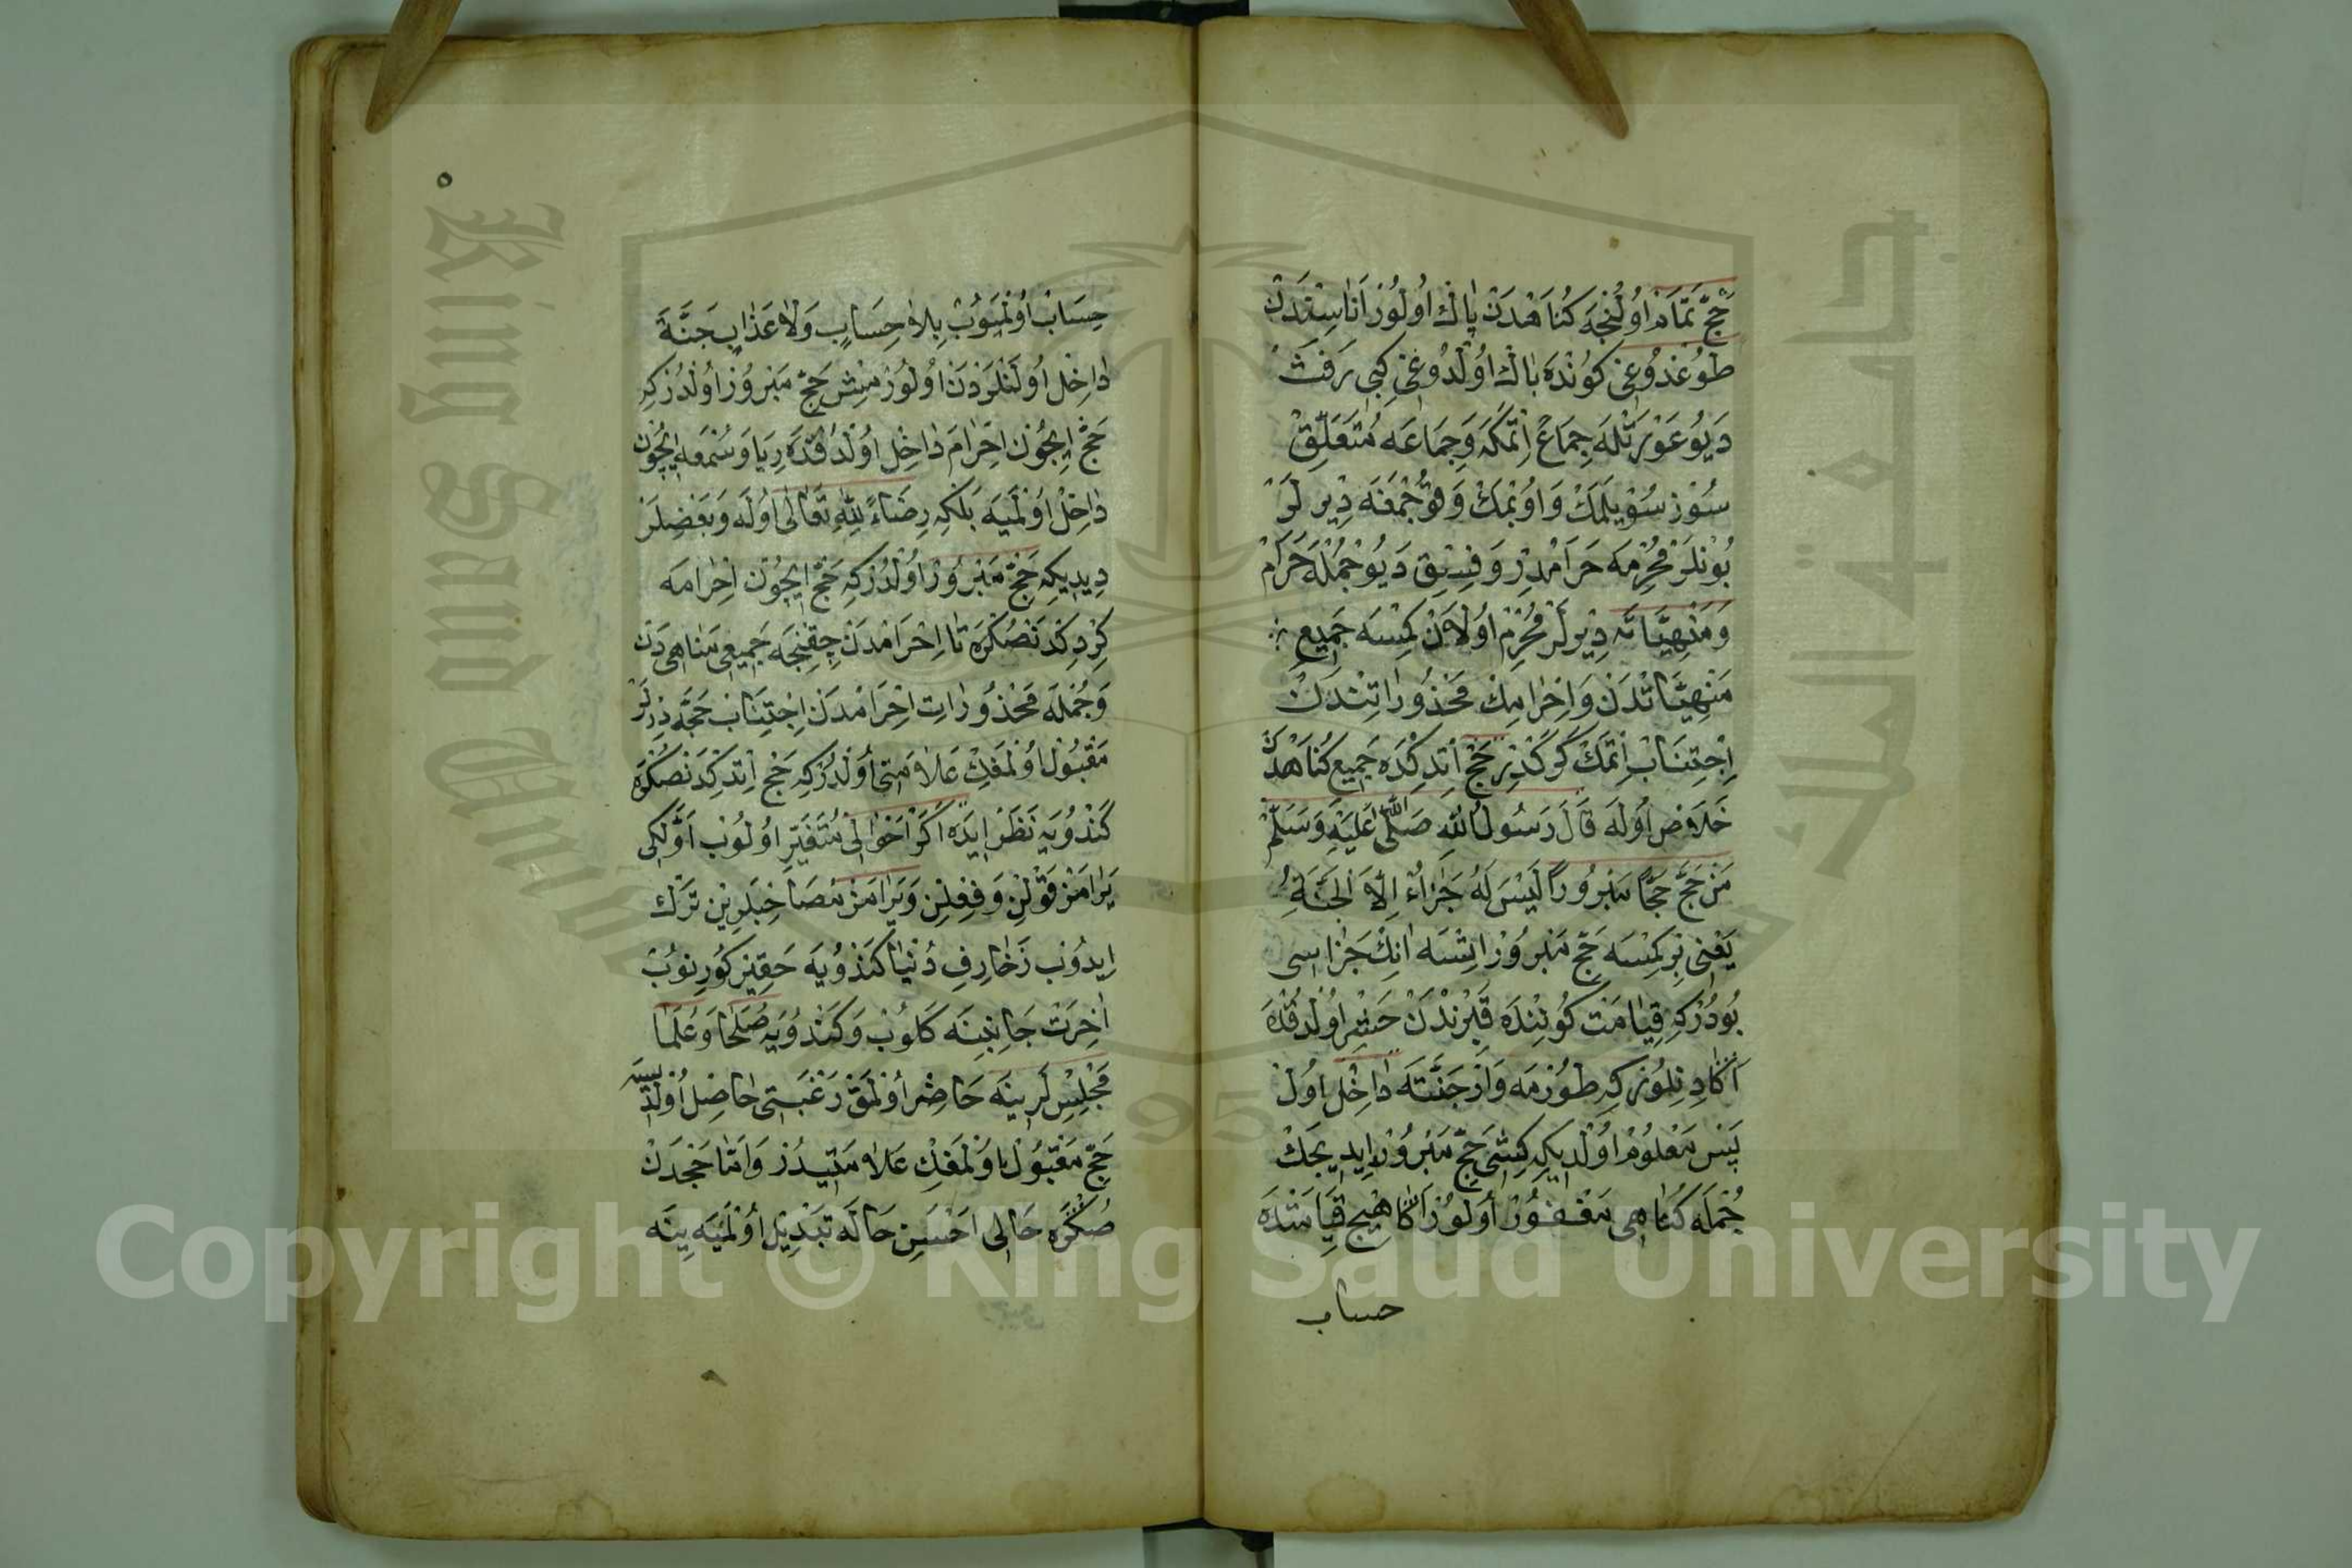 حَجّ تَمَام اوُلُنْجَه كُنَاهْدَنْ پٰاكْ اوُلُورْ اَنَاسِنْدَنْ
طوُغْدُوغِى كوُنْدَه پٰاكْ اوُلْدُوغِى كِبِى رَفَثْ
دَيوُ عَوْرَتْلَه جِمَاعْ اِتْمَكَه وَجِمَاعَه مُتَعَلِّقْ
سُوْز سُوْيلَمَكْ وَاوُپْمَكْ وَقُوجْمَغَه دِيرلَرْ
بوُنْلَرْ مُحْرِمَه حَرَامْدِرْ وَفِسْق دَيوُ جُمْلَه حَرَامْ
وَمَنْهِيَّاتَه دِيْرلَرْ مُحْرِمْ اوُلَانْ كِمْسَه جَمِيعِ
مَنْهِيَّاتْدَنْ وَاِحْرَامِكْ مَحْذُورَاتِنْدَنْ
اِجْتِنَابْ اِتْمَكْ كَرَكْدِرْ حَجّ اِتْدِكْدَه جَمِيع كُنَاهْدَنْ
خَلَاص اوُلَه قَالَ رَسُولُ اللّٰهِ صَلَّى اللّٰه عَلَيْهِ وَسَلَّمْ
مَنْ حَجَّ حَجًّا مَبْرُورًا لَيْسَ لَهُ جَزَاءٌ اِلَّا الْجَنَّةِ
يَعْنِى بِرْ كِمْسَه حَجّ مَبْرُورْ اِتْسَه اَنِكْ جَزَاسِى
بوُدُرْكِه قِيَامَتْ كوُنِنْدَه قَبْرِنْدَنْ حَشْر اوُلْدُقْدَه
اَكَا دِنِلوُرْكِه طوُرْمَه وَارْ جَنَّتَه دٰاخِلْ اوُلْ
پَسْ مَعْلوُمْ اوُلْدِيكِه كِشِى حَجّ مَبْرُورْ اِيدِيجَكْ
جُمْلَه كُنَاهِى مَغْفُورْ اوُلوُرْ اَكَا هِيچْ قِيَامَتْدَه
حساب
٥
حِسَابْ اوُلْمَيوُبْ بِلَا حِسَابٍ وَلَا عَذَابٍ جَنَّةَ
دٰاخِل اوُلَنْلَرْدَنْ اوُلوُرْمِشْ حَجّ مَبْرُورْ اوُلْدُرْكِه
حَجّ اِيچُونْ اِحْرَامَ دٰاخِلْ اوُلْدُقْدَه رِيَا وَسُمْعَه اِيچُونْ
دٰاخِلْ اوُلْمَيَه بَلْكِه رِضَاءً لِلّٰهِ تَعَالٰى اوُلَه وَبَعْضِلَرْ
دِيدِيكِه حَجّ مَبْرُورْ اوُلْدُرْكِه حَجّ اِيچُونْ اِحْرَامَه
كِرْدِكْدَنْصُكْرَه تَا اِحْرَامْدَنْ چِقِنْجَه جَمِيعِ مَنَاهِى دَنْ
وَجُمْلَه مَحْذُورَاتِ اِحْرَامْدَنْ اِجْتِنَابْ حَجَّه دِيرلَرْ
مَقْبُولْ اوُلْمَغِكْ عَلَامَتِى اوُلْدُرْكِه حَجّ اِتْدِكْدَنْصُكْرَه
كَنْدُويَه نَظَرْ اِيدَه اَكَرْ اَحْوَالِى مُتَغَيِّرْ اوُلوُبْ اَوَّلْكِى
يَرَامَزْ قَوْلِنْ وَفِعْلِنْ وَيَرَامَزْ مُصَاحِبَلَرِينْ تَرْك
اِيدوُبْ زَخَارِفِ دُنْيَا كَنْدُويَه حَقِيرْ كوُرِنوُبْ
اٰخِرَتْ جَانِبِنَه كَلوُبْ وَكَنْدُويَه صُلَحَا وَعُلَمَا
مَجْلِسْلَرِينَه حَاضِرْ اوُلْمَقْ رَغْبَتِى حَاصِلْ اوُلْدِيسَه
حَجّ مَقْبُولْ اوُلْمَغِكْ عَلَامَتِيدُرْ وَاَمَّا حَجْدَنْ
صُكْرَه حَالِى اَحْسَنِ حَالَه تَبْدِيلْ اوُلْمَيَه يِنَه
Copyright © King Saud University
King Saud University
جامعة الملك سعود
1957